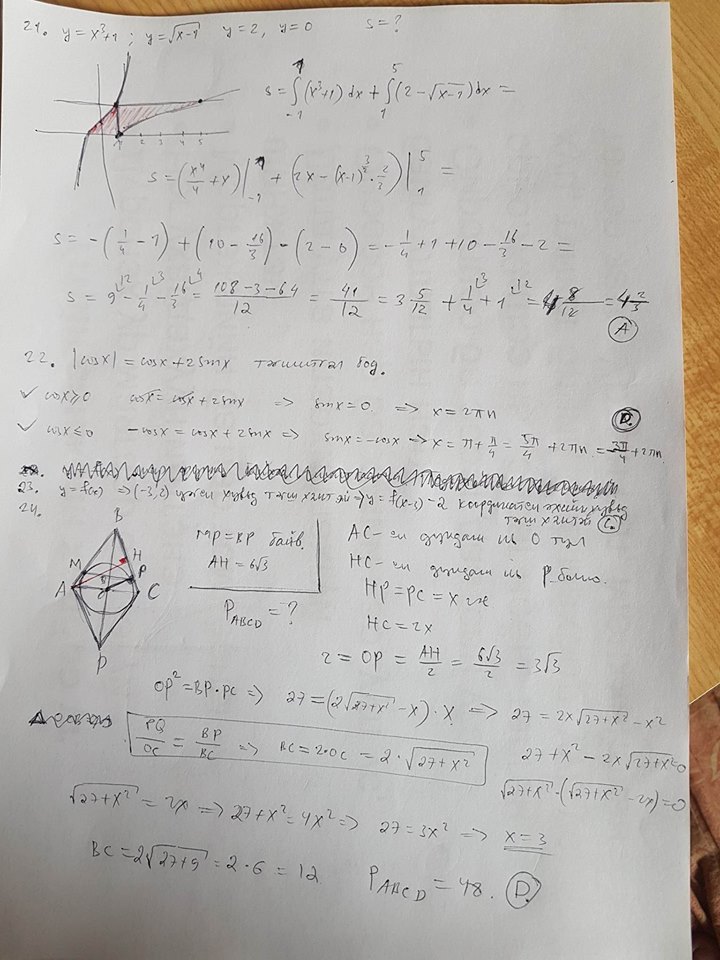 21. y = x³+1 ; y = √(x-1) y = 2, y = 0 S = ?
S = ∫₋₁¹ (x³+1) dx + ∫₁⁵ (2 - √(x-1)) dx =
1 2 3 4 5
S = (x⁴/4 + x) |₋₁¹ + (2x - (x-1)^(3/2) · 2/3) |₁⁵ =
S = -(1/4 - 1) + (10 - 16/3) - (2 - 0) = -1/4 + 1 + 10 - 16/3 - 2 =
S = 9 - 1/4 - 16/3 = (108 - 3 - 64)/12 = 41/12 = 3 5/12 + 1/4 + 1 = 4 8/12 = 4 2/3
A
22. |cosx| = cosx + 2sinx тэгшитгэл бод.
✓ cosx ≥ 0 cosx = cosx + 2sinx => sinx = 0. => x = 2πn
D.
✓ cosx ≤ 0 -cosx = cosx + 2sinx => sinx = -cosx → x = π + π/4 = 5π/4 + 2πn = 3π/4 + 2πn
23. y = f(x) => (-3, 2) цэгийн хувьд тэгш хэмтэй => y = f(x-3) - 2 координатын эхийн хувьд
тэгш хэмтэй C.
24.
B
M H P
A C
D
MP = BP байв.
AH = 6√3
P_ABCD = ?
AC-ийн дундаж нь O тул
HC-ийн дундаж нь P болно.
HP = PC = x гэж
HC = 2x
r = OP = AH/2 = 6√3/2 = 3√3
OP² = BP·PC => 27 = (2√(27+x²) - x)·x => 27 = 2x√(27+x²) - x²
PO/OC = BP/BC => BC = 2·OC = 2·√(27+x²)
27 + x² - 2x√(27+x²) = 0
√(27+x²)·(√(27+x²) - 2x) = 0
√(27+x²) = 2x => 27 + x² = 4x² => 27 = 3x² => x = 3
BC = 2√(27+9) = 2·6 = 12 P_ABCD = 48. D.